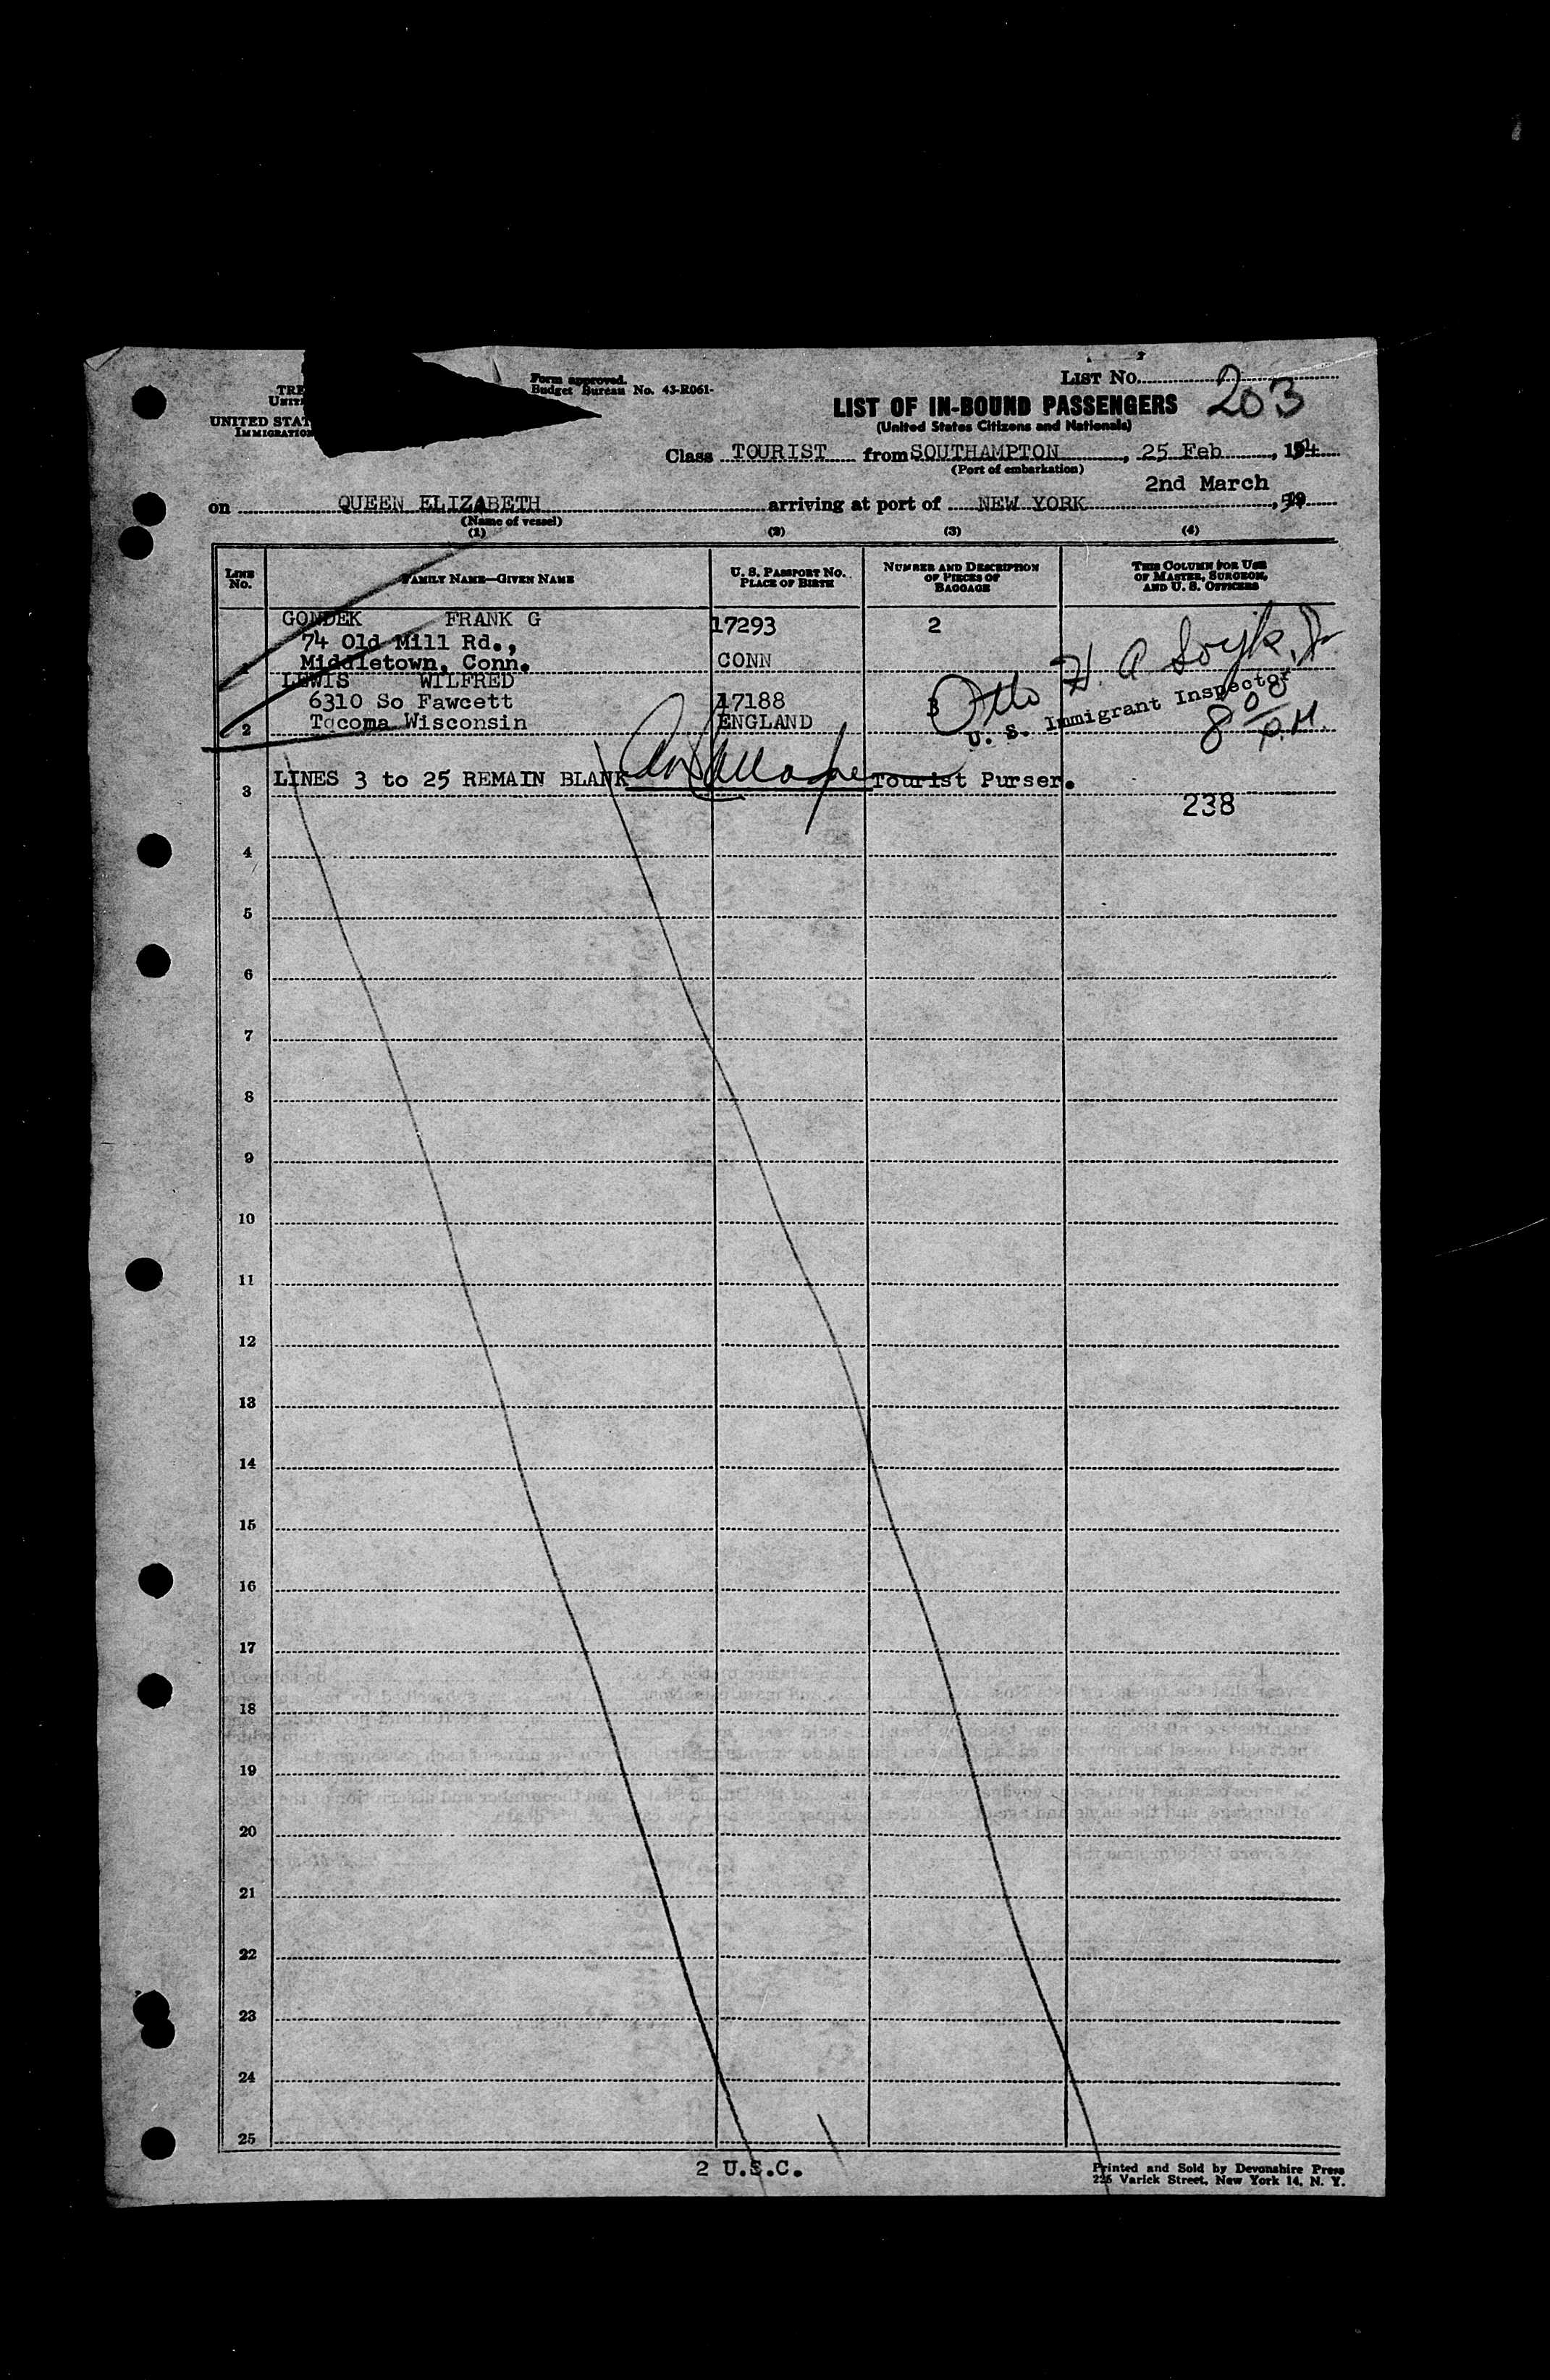 Form approved.
TRE
Budget Bureau No. 43-R061-
UNIT
UNITED STAT
IMMIGRATION
LIST No.
203
LIST OF IN-BOUND PASSENGERS
(United States Citizens and Nationals)
Class TOURIST from SOUTHAMPTON, 25 Feb, 19
(Port of embarkation)
2nd March
on QUEEN ELIZABETH arriving at port of NEW YORK
(Name of vessel)
(1) (2) (3) (4)
LINE No. FAMILY NAME—GIVEN NAME U. S. PASSPORT NO. PLACE OF BIRTH NUMBER AND DESCRIPTION OF PIECES OF BAGGAGE THIS COLUMN FOR USE OF MASTER, SURGEON, AND U. S. OFFICERS
GONDEK FRANK G 17293 2
74 Old Mill Rd.,
Middletown, Conn. CONN
LEWIS WILFRED
6310 So Fawcett 17188 3
2 Tacoma Wisconsin ENGLAND
Otto H. A
U. S. Immigrant Inspector
8 00 P.M.
3 LINES 3 to 25 REMAIN BLANK Tourist Purser.
238
4
5
6
7
8
9
10
11
12
13
14
15
16
17
18
19
20
21
22
23
24
25
2 U.S.C.
Printed and Sold by Devonshire Press
225 Varick Street, New York 14, N. Y.